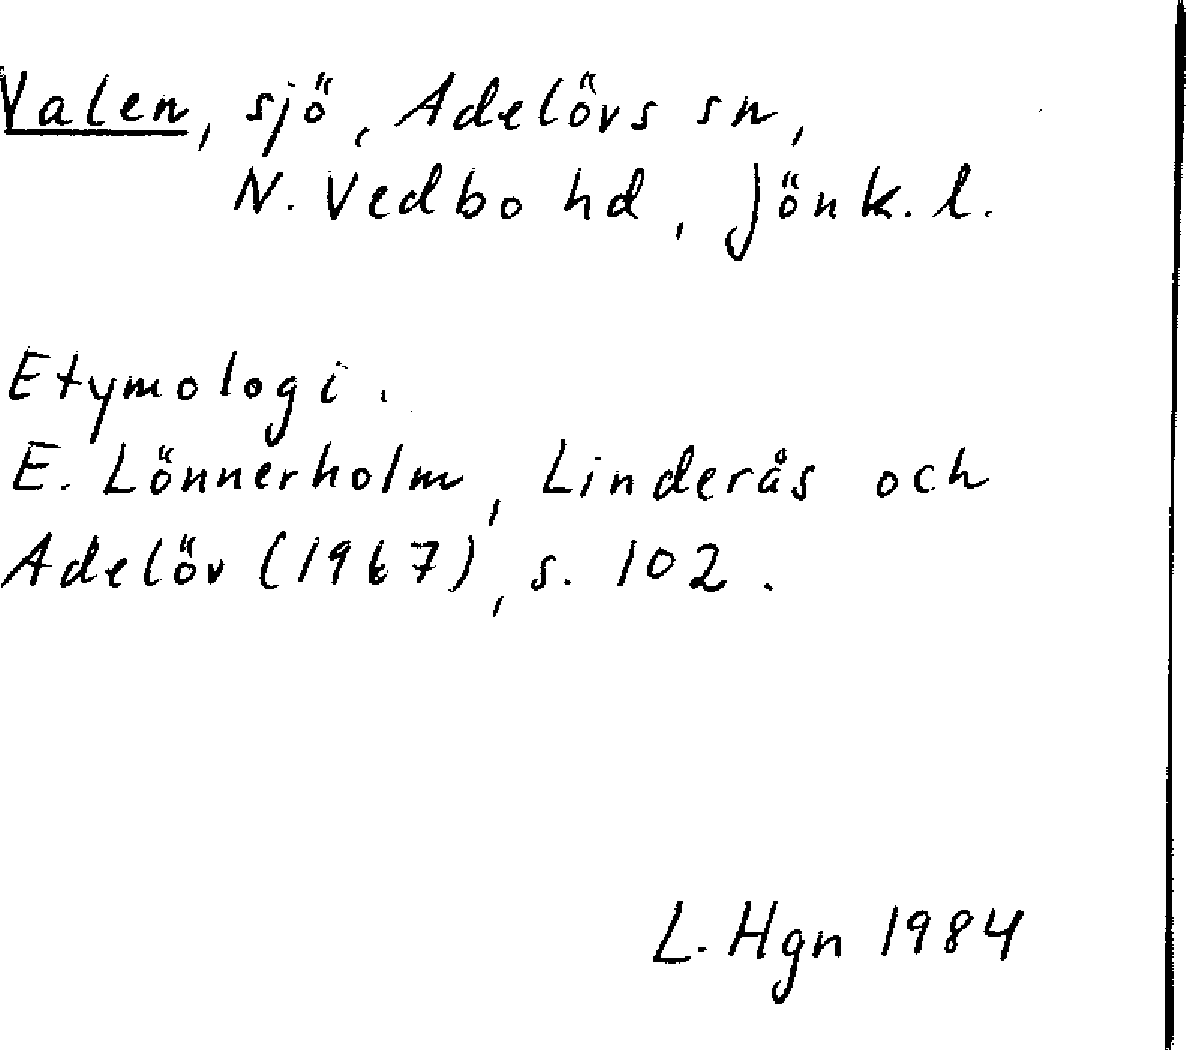 Valen, sjö, Adelövs sn,
N. Vedbo hd, Jönk. l.
Etymologi.
E. Lönnerholm, Linderås och
Adelöv (1967), s. 102.
L. Hgn 1984